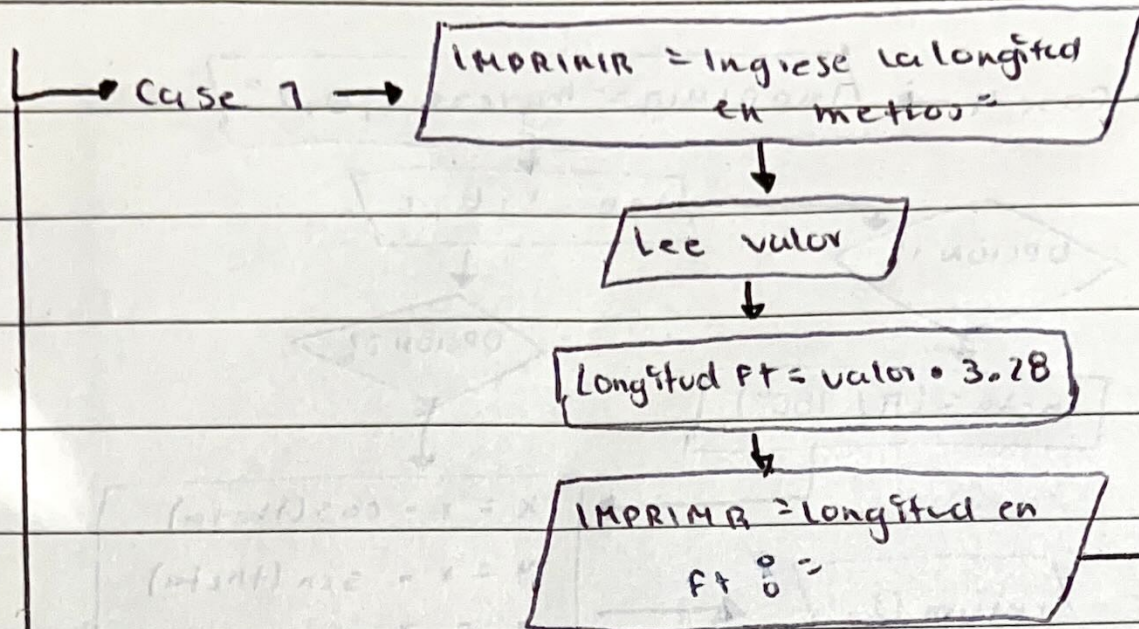 Case 1
IMPRIMIR "Ingrese la longitud
en metros"
Lee valor
Longitud Ft = valor • 3.28
IMPRIMR "longitud en
Ft : "